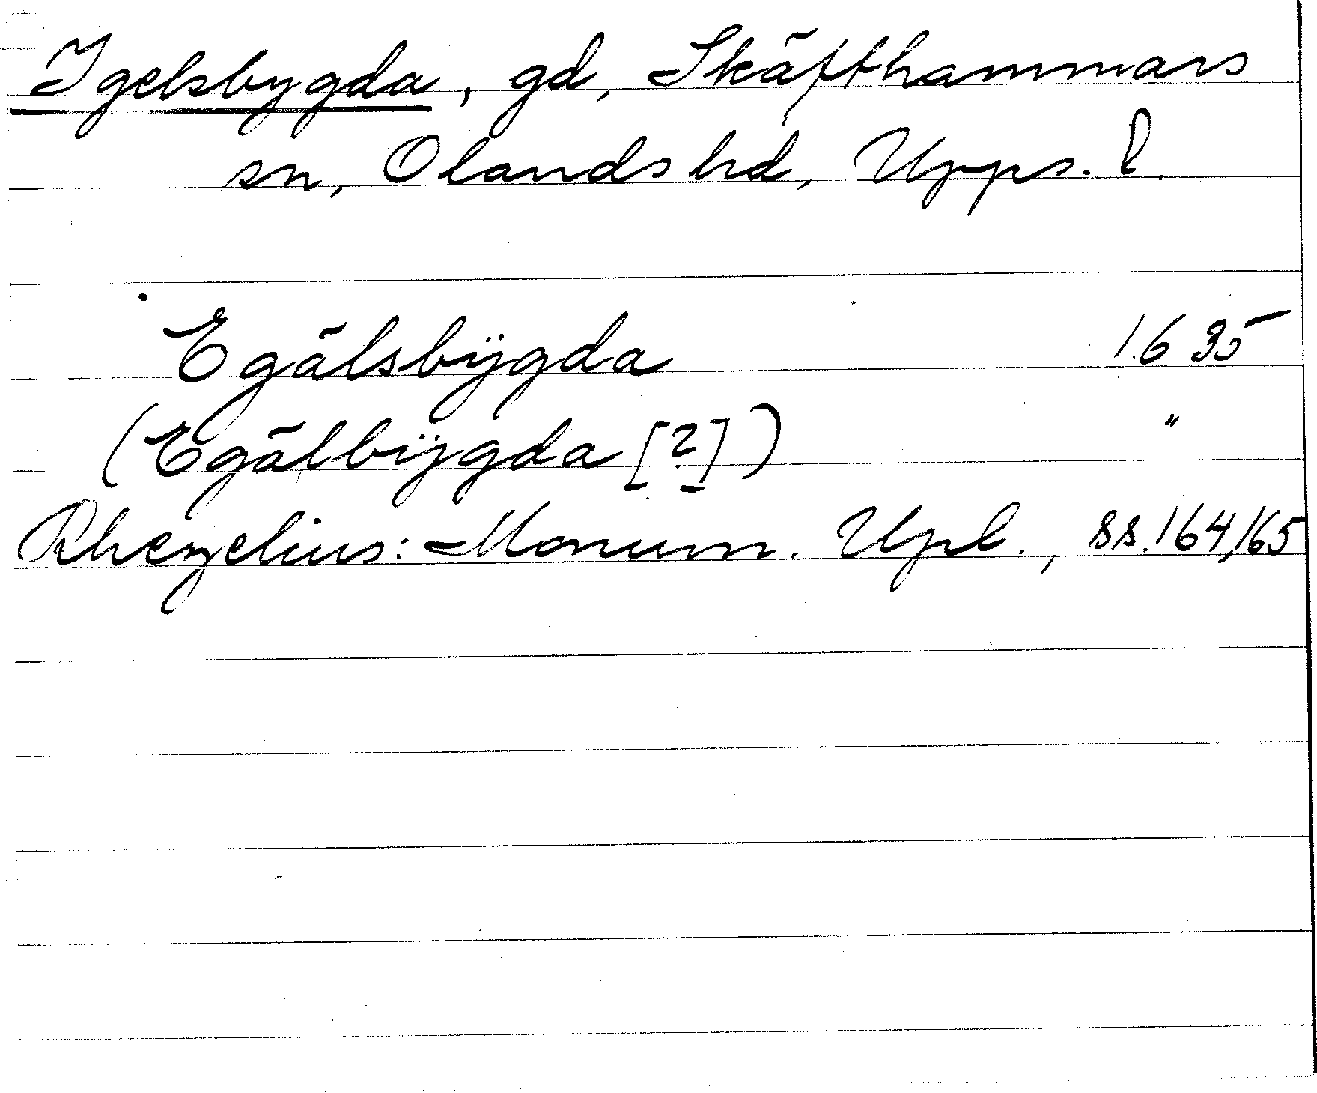 Igelsbygda, gd, Skäfthammars
sn, Olands hd, Upps. l.
Egälsbÿgda 1635
(Egälbÿgda [?]) "
Rhezelius: Monum. Upl., ss. 164, 165